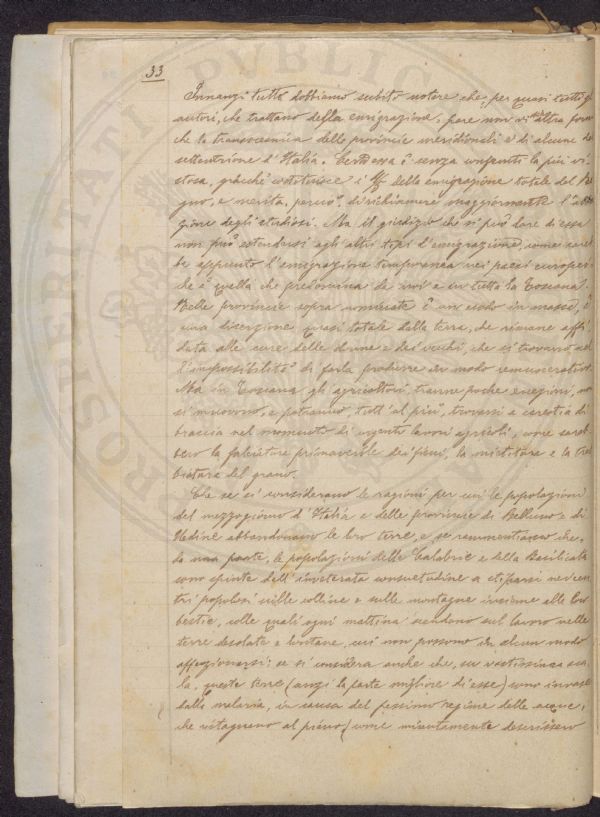 33
Innanzi tutto dobbiamo subito notare che, per quasi tutti gli
autori, che trattano della emigrazione, pare non vi sia altra forma
che la transoceanica delle provincie meridionali e di alcune del
settentrione d'Italia. Certo essa è senza confronto la più vi-
stosa, giacchè costituisce i della emigrazione totale del Re-
gno, e merita, perciò, di richiamare maggiormente l'atten-
zione degli studiosi. Ma il giudizio che si può dare di essa
non può estendersi agli altri tipi d'emigrazione, come sareb-
be appunto l'emigrazione temporanea nei paesi europei
che è quella che predomina da noi e in tutta la Toscana.
Nelle provincie sopra nominate è un esodo in massa, è
una diserzione quasi totale dalle terre, che rimane affi-
data alle cure delle donne e dei vecchi, che si trovano nel-
l'impossibilità di farla produrre in modo remunerativo.
Ma in Toscana gli agricoltori, tranne poche eccezioni, non
si muovono, e potranno, tutt'al più, trovarsi a carestia di
braccia nel momento di urgenti lavori agricoli, come sareb-
bero la falciatura primaverile dei fieni, la mietitura e la treb-
biatura del grano.
Che se si considerano le ragioni per cui le popolazioni
del mezzogiorno d'Italia e delle provincie di Belluno e di
Udine abbandonano le loro terre, e se rammentiamo che,
da una parte, le popolazioni delle Calabrie e della Basilicata
sono spinte dall'inveterata consuetudine a stiparsi nei cen-
tri popolosi sulle colline e sulle montagne insieme alle loro
bestie, colle quali ogni mattina scendono sul lavoro nelle
terre desolate e lontane, cui non possono in alcun modo
affezionarsi; se si considera anche che, su vastissima sca-
la, queste terre (anzi la parte migliore di esse) sono invase
dalla malaria, in causa del pessimo regime delle acque,
che ristagnano al piano (come minutamente descrissero
PUBLIC
PROSPERITATI